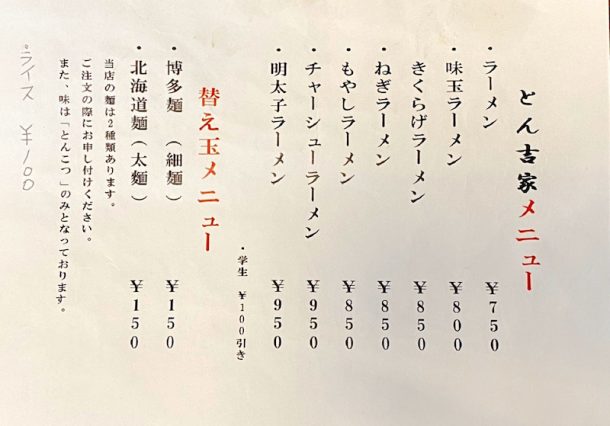 とん吉家メニュー
・ラーメン ¥750
・味玉ラーメン ¥800
きくらげラーメン ¥850
・ねぎラーメン ¥850
・もやしラーメン ¥850
・チャーシューラーメン ¥950
・明太子ラーメン ¥950
・学生 ¥100引き
替え玉メニュー
・博多麺(細麺) ¥150
・北海道麺(太麺) ¥150
当店の麺は2種類あります。
ご注文の際にお申し付けください。
また、味は「とんこつ」のみとなっております。
・ライス ¥100